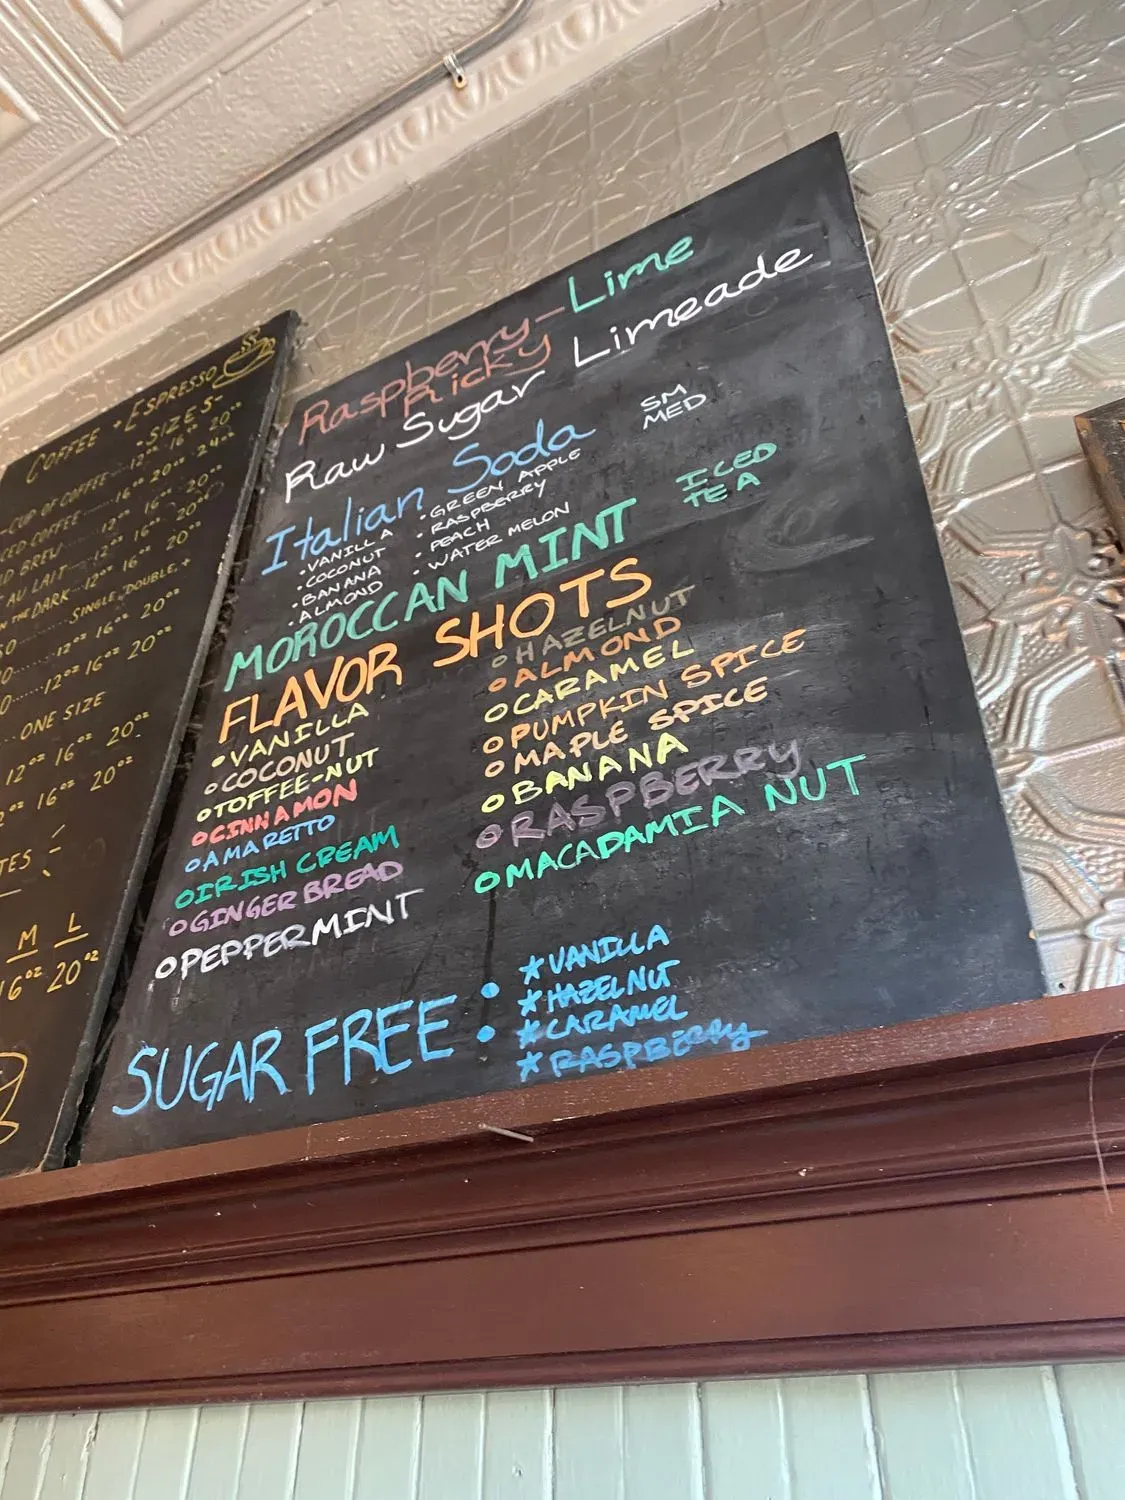 COFFEE + ESPRESSO
- SIZES -
CUP OF COFFEE 12oz 16oz 20oz
ICED COFFEE 16oz 20oz 24oz
BREW 12oz 16oz 20oz
AU LAIT 12oz 16oz 20oz
IN THE DARK 12oz 16 20oz
SINGLE, DOUBLE, +
12oz 16oz 20oz
12oz 16oz 20oz
ONE SIZE
12oz 16oz 20oz
16oz 20oz
M L
16oz 20oz
Raspberry-Lime
Ricky
Raw Sugar Limeade
Italian Soda SM
MED
• VANILLA • GREEN APPLE
• COCONUT • RASPBERRY
• BANANA • PEACH
• ALMOND • WATER MELON
MOROCCAN MINT ICED
TEA
FLAVOR SHOTS
• VANILLA
○ COCONUT
○ TOFFEE-NUT
○ CINNAMON
○ AMARETTO
○ IRISH CREAM
○ GINGERBREAD
○ PEPPERMINT
○ HAZELNUT
○ ALMOND
○ CARAMEL
○ PUMPKIN SPICE
○ MAPLE SPICE
○ BANANA
○ RASPBERRY
○ MACADAMIA NUT
SUGAR FREE:
★ VANILLA
★ HAZELNUT
★ CARAMEL
★ RASPBERRY